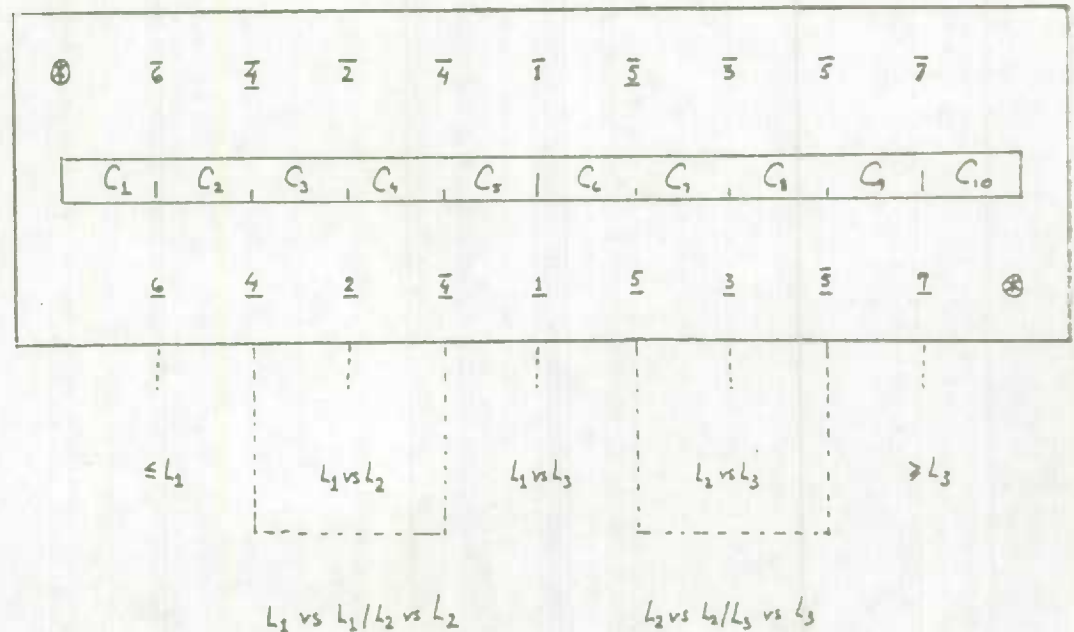 ⊛ 6̅ 4̲̅ 2̅ 4̅ 1̅ 5̲̅ 3̅ 5̅ 7̅
C₁ C₂ C₃ C₄ C₅ C₆ C₇ C₈ C₉ C₁₀
6̲ 4̲ 2̲ 4̲̅ 1̲ 5̲ 3̲ 5̲̅ 7̲ ⊛
≤ L₁ L₁ vs L₂ L₁ vs L₃ L₂ vs L₃ ≥ L₃
L₁ vs L₁/L₂ vs L₂ L₂ vs L₂/L₃ vs L₃